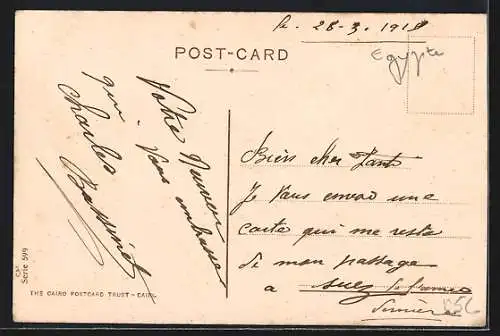 le - 28-3. 1918
POST-CARD
Egypte
Votre Neuveu
qui Vous embrasse
Charles
Bien cher Tante
Je Vous envoi une
carte qui me reste
de mon passage
a Suez le
dernier
THE CAIRO POSTCARD TRUST - CAIRO
Serie 599